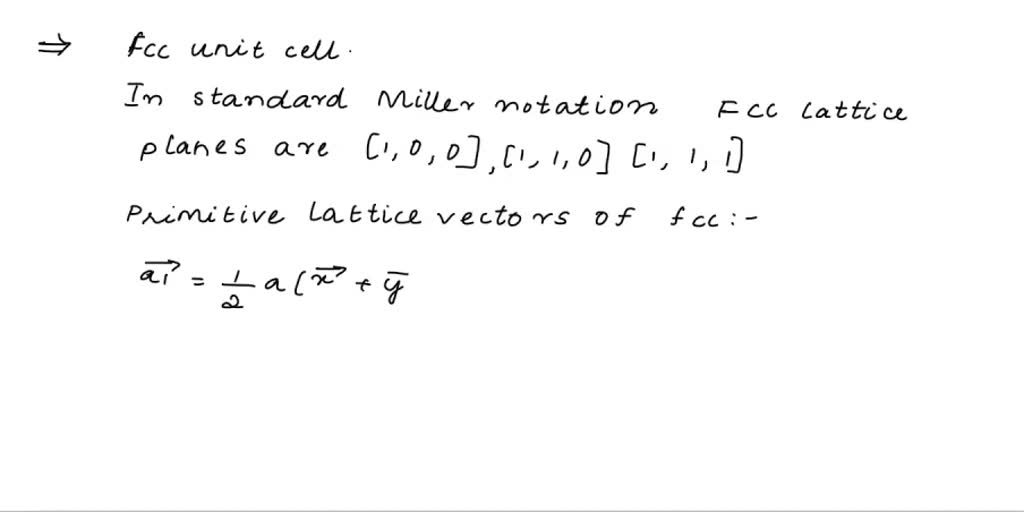 ⇒ fcc unit cell.
In standard Miller notation FCC lattice
planes are [1, 0, 0], [1, 1, 0] [1, 1, 1]
Primitive lattice vectors of fcc :-
a₁⃗ = 1/2 a (x⃗ + y̅